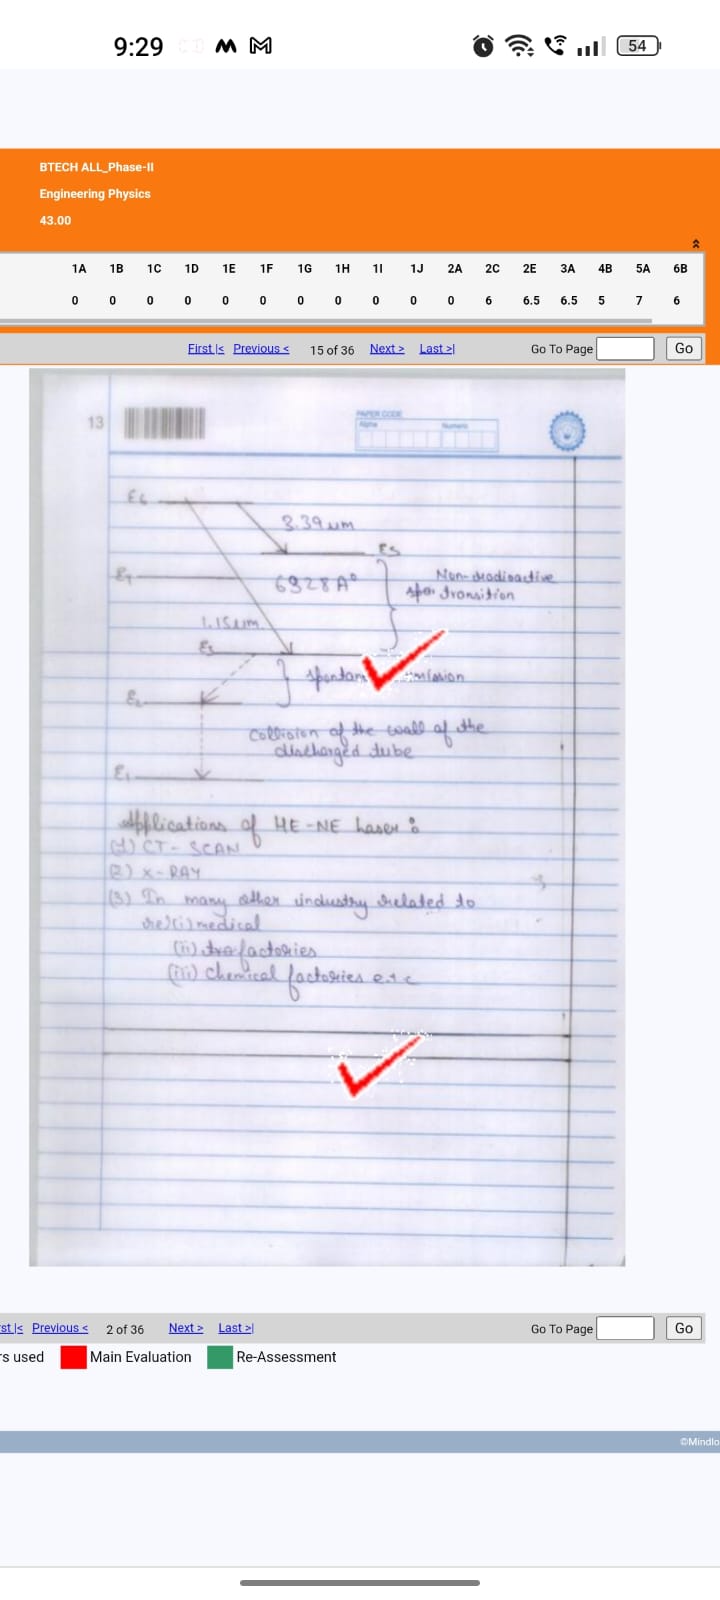 9:29
54
BTECH ALL_Phase-II
Engineering Physics
43.00
1A 1B 1C 1D 1E 1F 1G 1H 1I 1J 2A 2C 2E 3A 4B 5A 6B
0 0 0 0 0 0 0 0 0 0 0 6 6.5 6.5 5 7 6
First |< Previous < 15 of 36 Next > Last >| Go To Page Go
13
PAPER CODE
Alpha Numeric
E6
3.39 um
E5
6328A°
Non-dradioactive
transition
1.15um
E2
emission
Collision of the wall of the
discharged tube
E1
Applications of HE-NE Laser:
(1) CT-SCAN
(2) X-RAY
(3) In many other industry related to
(i) medical
(ii) factories
(iii) Chemical factories e.t.c
rst |< Previous < 2 of 36 Next > Last >| Go To Page Go
rs used Main Evaluation Re-Assessment
©Mindlo